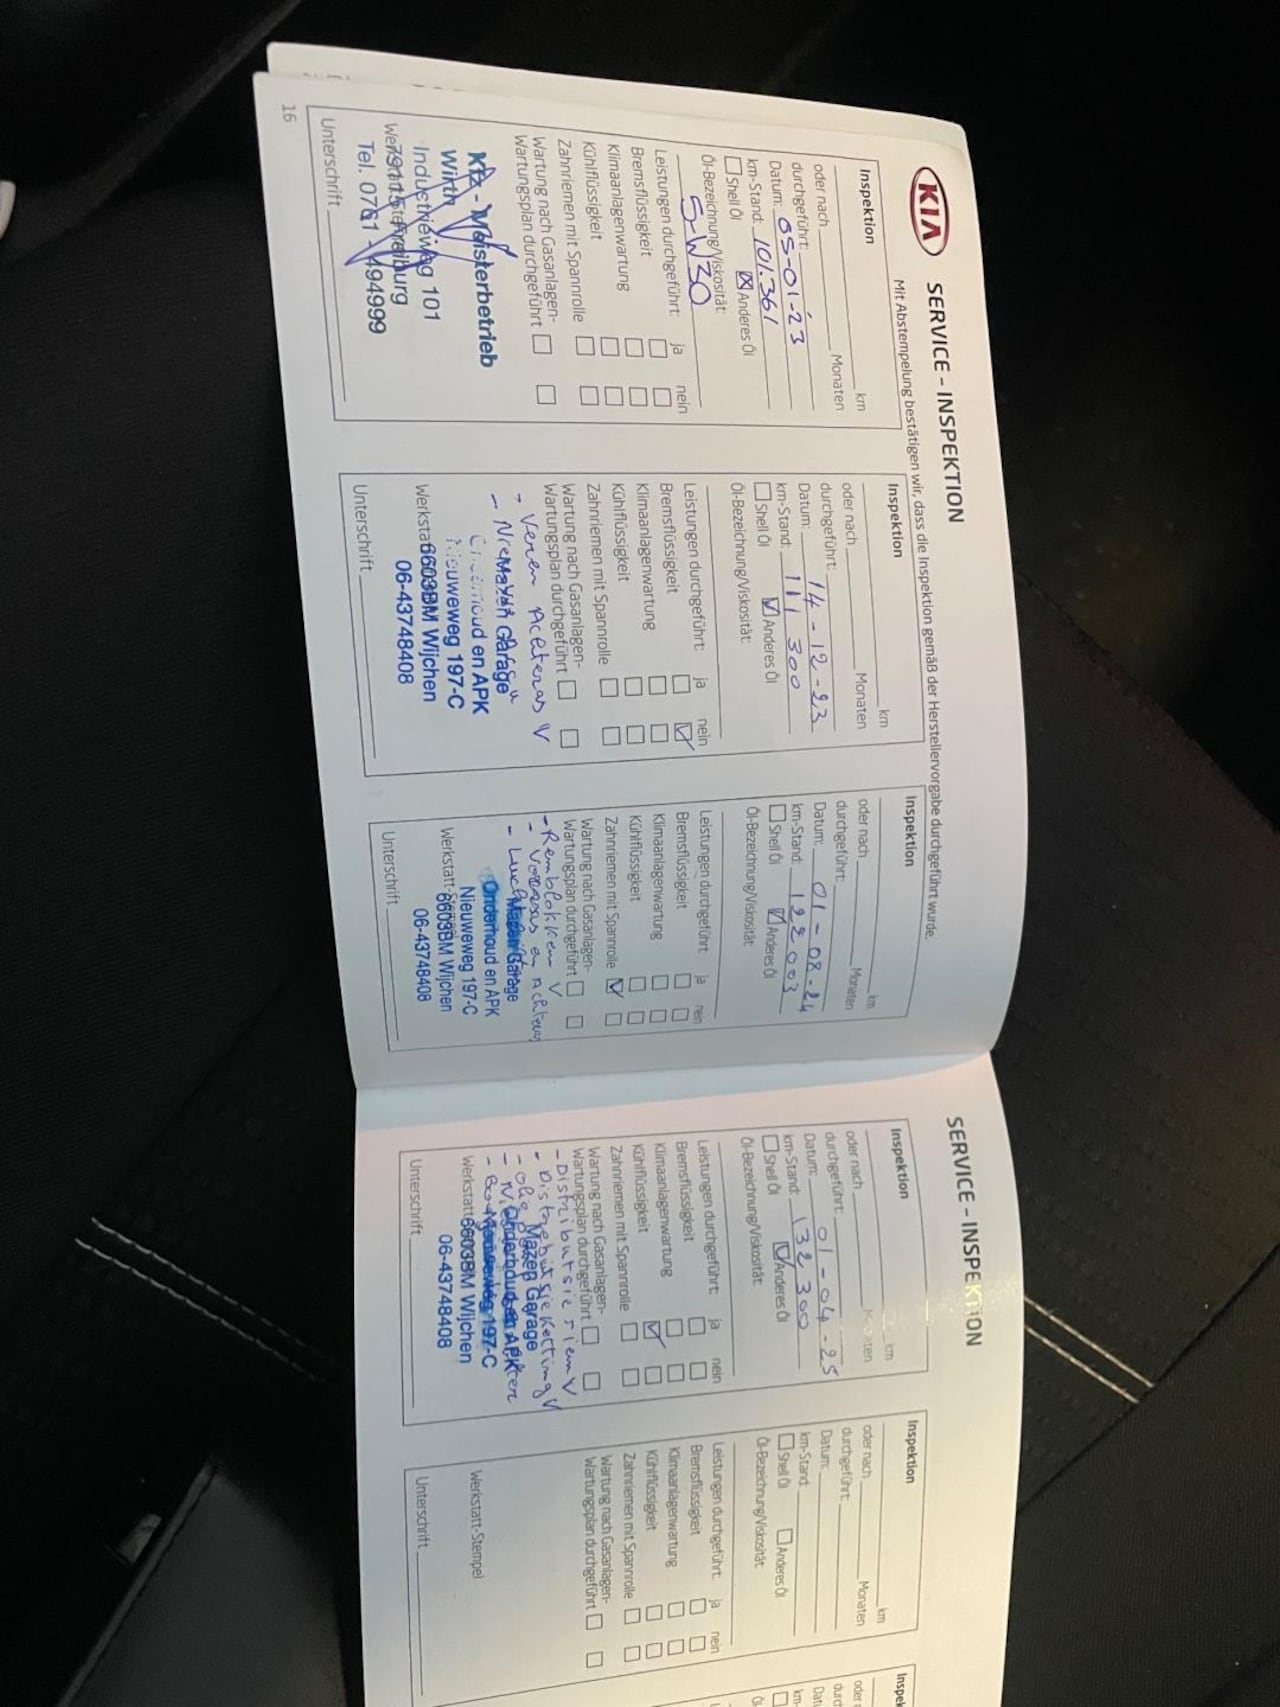 KIA
SERVICE - INSPEKTION
Mit Abstempelung bestätigen wir, dass die Inspektion gemäß der Herstellervorgabe durchgeführt wurde.
Inspektion
km
oder nach Monaten
durchgeführt:
Datum: 05-01-23
km-Stand: 101.361
Shell Öl Anderes Öl
Öl-Bezeichnung/Viskosität:
5W30
Leistungen durchgeführt: ja nein
Bremsflüssigkeit
Klimaanlagenwartung
Kühlflüssigkeit
Zahnriemen mit Spannrolle
Wartung nach Gasanlagen-
Wartungsplan durchgeführt
Kfz - Meisterbetrieb
Wirth
Industrieweg 101
79115 Freiburg
Tel. 0761 - 494999
Unterschrift
16
Inspektion
km
oder nach Monaten
durchgeführt:
Datum: 14-12-23
km-Stand: 111 300
Shell Öl Anderes Öl
Öl-Bezeichnung/Viskosität:
Leistungen durchgeführt: ja nein
Bremsflüssigkeit
Klimaanlagenwartung
Kühlflüssigkeit
Zahnriemen mit Spannrolle
Wartung nach Gasanlagen-
Wartungsplan durchgeführt
- Veren Achteras V
Mazen Garage
Onderhoud en APK
Nieuweweg 197-C
6603BM Wijchen
06-43748408
Unterschrift
Inspektion
km
oder nach Monaten
durchgeführt:
Datum: 01-08-24
km-Stand: 122 003
Shell Öl Anderes Öl
Öl-Bezeichnung/Viskosität:
Leistungen durchgeführt: ja nein
Bremsflüssigkeit
Klimaanlagenwartung
Kühlflüssigkeit
Zahnriemen mit Spannrolle
Wartung nach Gasanlagen-
Wartungsplan durchgeführt
- Remblokken V
- Vooras en Achteras
Mazen Garage
Onderhoud en APK
Nieuweweg 197-C
6603BM Wijchen
06-43748408
Unterschrift
SERVICE - INSPEKTION
Inspektion
km
oder nach Monaten
durchgeführt:
Datum: 01-04-25
km-Stand: 132 300
Shell Öl Anderes Öl
Öl-Bezeichnung/Viskosität:
Leistungen durchgeführt: ja nein
Bremsflüssigkeit
Klimaanlagenwartung
Kühlflüssigkeit
Zahnriemen mit Spannrolle
Wartung nach Gasanlagen-
Wartungsplan durchgeführt
- Distributsie riem V
- Distrebutsie Ketting V
Mazen Garage
Onderhoud en APK
Nieuweweg 197-C
6603BM Wijchen
06-43748408
Unterschrift
Inspektion
km
oder nach Monaten
durchgeführt:
Datum:
km-Stand:
Shell Öl Anderes Öl
Öl-Bezeichnung/Viskosität:
Leistungen durchgeführt: ja nein
Bremsflüssigkeit
Klimaanlagenwartung
Kühlflüssigkeit
Zahnriemen mit Spannrolle
Wartung nach Gasanlagen-
Wartungsplan durchgeführt
Werkstatt-Stempel
Unterschrift